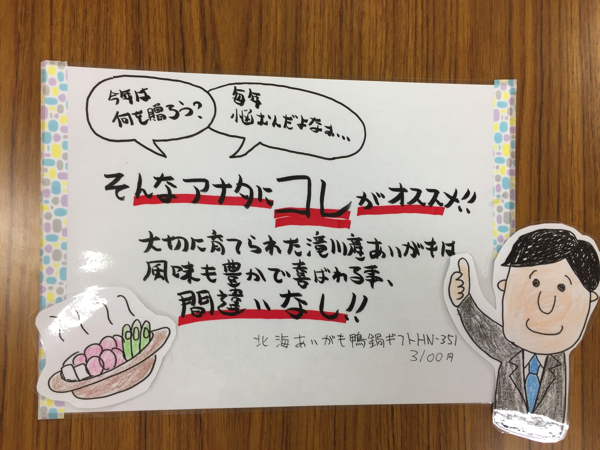 今年は
何を贈ろう?
毎年
悩むんだよなぁ...
そんなアナタにコレがオススメ!!
大切に育てられた滝川産あいがもは
風味も豊かで喜ばれる事、
間違いなし!!
北海あいがも鴨鍋ギフトHN-351
3100円